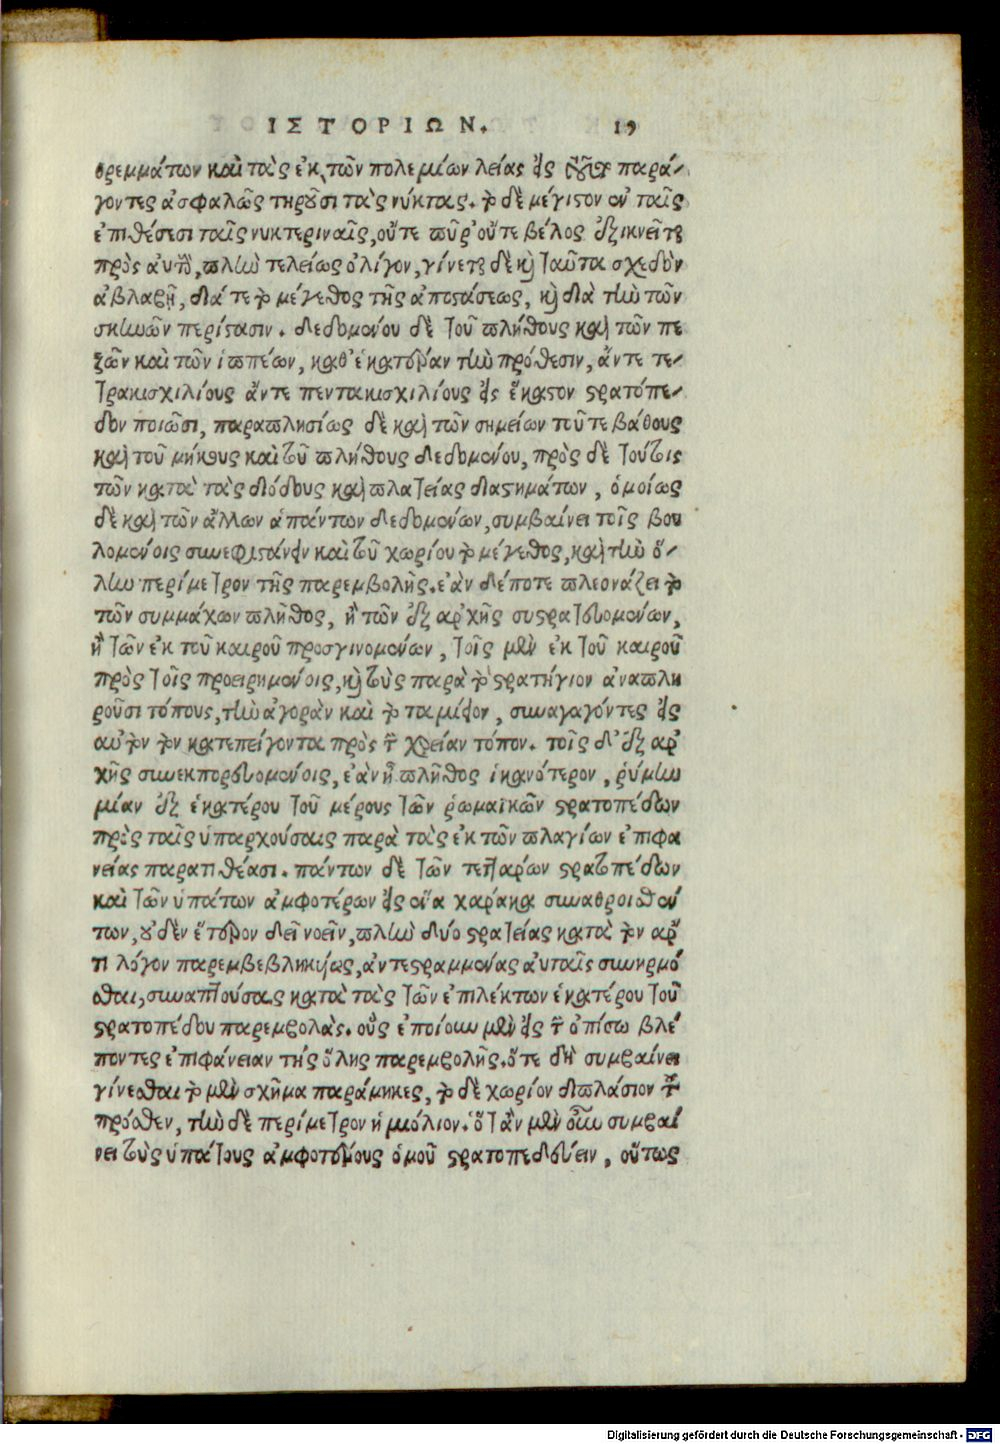 ΙΣΤΟΡΙΩΝ. 19
θρεμμάτων καὶ τὰς ἐκ τῶν πολεμίων λείας εἰς τοῦτον παρά-
γοντες ἀσφαλῶς τηροῦσι τὰς νύκτας. τὸ δὲ μέγιστον ἐν ταῖς
ἐπιθέσεσι ταῖς νυκτεριναῖς, οὔτε πῦρ οὔτε βέλος ἐξικνεῖται
πρὸς αὐτοὺς, πλὴν τελείως ὀλίγον, γίνεται δὲ καὶ ταῦτα σχεδὸν
ἀβλαβῆ, διά τε τὸ μέγεθος τῆς ἀποστάσεως, καὶ διὰ τὴν τῶν
σκηνῶν περίστασιν. δεδομένου δὲ τοῦ πλήθους καὶ τῶν πε
ζῶν καὶ τῶν ἱππέων, καθ' ἑκατέραν τὴν πρόθεσιν, ἄντε τε-
τρακισχιλίους ἄντε πεντακισχιλίους εἰς ἕκαστον στρατόπε-
δον ποιῶσι, παραπλησίως δὲ καὶ τῶν σημείων τοῦ τε βάθους
καὶ τοῦ μήκους καὶ τοῦ πλήθους δεδομένου, πρὸς δὲ τούτοις
τῶν κατὰ τὰς διόδους καὶ πλατείας διαστημάτων, ὁμοίως
δὲ καὶ τῶν ἄλλων ἁπάντων δεδομένων, συμβαίνει τοῖς βου
λομένοις συνεφιστάνειν καὶ τοῦ χωρίου τὸ μέγεθος, καὶ τὴν ὅ-
λην περίμετρον τῆς παρεμβολῆς. ἐὰν δέποτε πλεονάζει τὸ
τῶν συμμάχων πλῆθος, ἢ τῶν ἐξ ἀρχῆς συστρατευομένων,
ἢ τῶν ἐκ τοῦ καιροῦ προσγινομένων, τοῖς μὲν ἐκ τοῦ καιροῦ
πρὸς τοῖς προειρημένοις, καὶ τοὺς παρὰ τὸ στρατήγιον ἀναπλη
ροῦσι τόπους, τὴν ἀγορὰν καὶ τὸ ταμιεῖον, συναγαγόντες εἰς
αὐτὸν τὸν κατεπείγοντα πρὸς τὴν χρείαν τόπον. τοῖς δ' ἐξ ἀρ
χῆς συνεκπορευομένοις, ἐὰν ᾖ πλῆθος ἱκανότερον, ῥύμην
μίαν ἐξ ἑκατέρου τοῦ μέρους τῶν ῥωμαϊκῶν στρατοπέδων
πρὸς ταῖς ὑπαρχούσαις παρὰ τὰς ἐκ τῶν πλαγίων ἐπιφα
νείας παρατιθέασι. πάντων δὲ τῶν τεττάρων στρατοπέδων
καὶ τῶν ὑπάτων ἀμφοτέρων εἰς ἕνα χάρακα συναθροισθέν
των, οὐδὲν ἕτερον δεῖ νοεῖν, πλὴν δύο στρατείας κατὰ τὸν ἄρ
τι λόγον παρεμβεβληκυίας, ἀντεστραμμένας αὐταῖς συνηρμό
σθαι, συναπτούσας κατὰ τὰς τῶν ἐπιλέκτων ἑκατέρου τοῦ
στρατοπέδου παρεμβολάς. οὓς ἐποίουν μὲν εἰς τὴν ὀπίσω βλέ
ποντες ἐπιφάνειαν τῆς ὅλης παρεμβολῆς. ὅτε δὴ συμβαίνει
γίνεσθαι τὸ μὲν σχῆμα παράμηκες, τὸ δὲ χωρίον διπλάσιον τοῦ
πρόσθεν, τὴν δὲ περίμετρον ἡμιόλιον. ὅταν μὲν οὖν συμβαί
νει τοὺς ὑπάτους ἀμφοτέρους ὁμοῦ στρατοπεδεύειν, οὕτως
Digitalisierung gefördert durch die Deutsche Forschungsgemeinschaft - DFG